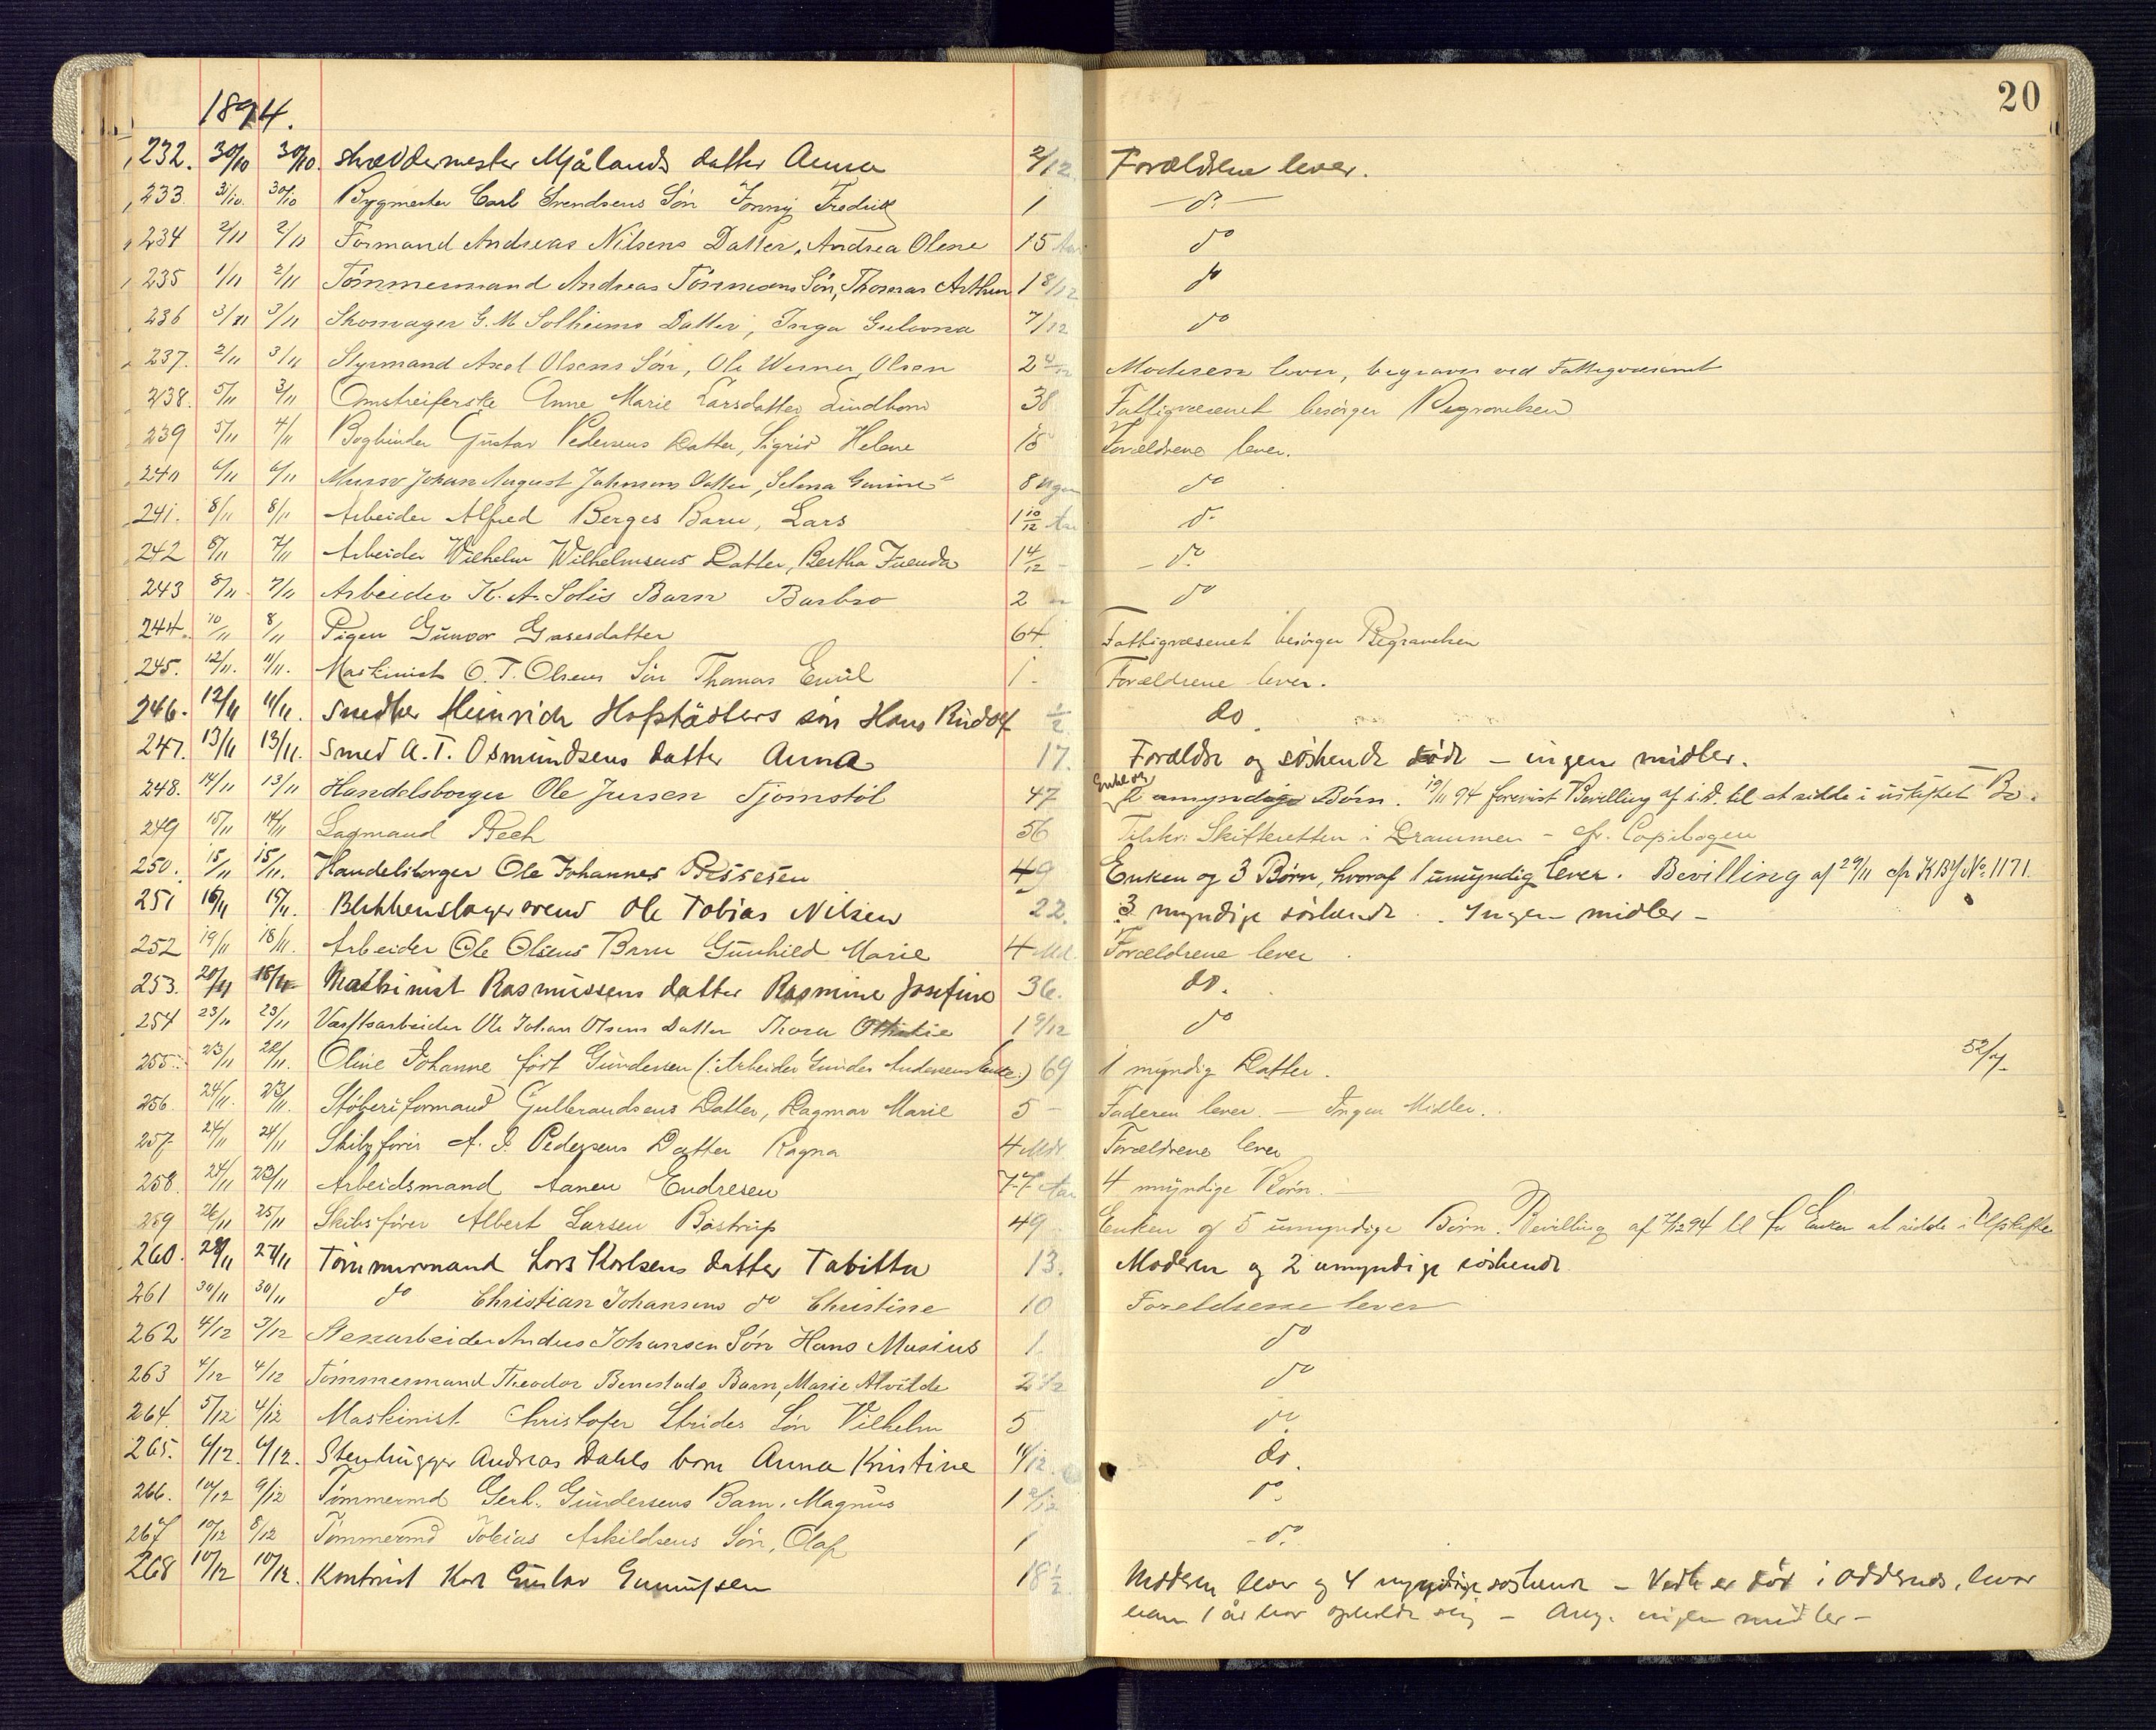 20
1894.
232. 30/10 30/10. skræddermester Mjålands datter Anna 2/12 Forældrene lever.
233. 31/10. 30/10 Bygmester Carl Svendsens Søn Fredrik 1 do
234 2/11 2/11 Formand Andreas Nilsens Datter, Andrea Olene 15 do
235 1/11 2/11 Tømmermand Andreas Sön, Thomas Arthur 1 8/12 do
236 3/11 3/11 Skomager G. M. Solheims Datter, Inga 7/12 do
237. 2/11 3/11 Styrmand Axel Olsens Søn, Ole Werner Olsen 2 Moderen lever, begraves ved Fattigvæsenet
238. 5/11 3/11 Omstreiferske Anne Marie Larsdatter Lindbom 38 Fattigvæsenet besørger Begravelsen
239 5/11 4/11 Bogbinder Gustav Pedersens Datter, Sigrid Helene Forældrene lever.
240 6/11 6/11 Murer Johan August Johnsens Datter, Selma 8 Uger do
241. 8/11 8/11 Arbeider Alfred Berges Barn, Lars 1 10/12 do
242 8/11 7/11 Arbeider Wilhelm Wilhelmsens Datter, Bertha 1 4/12 do
243 8/11 7/11 Arbeider K. A. Solis Barn Barbro 2 do
244. 10/11 8/11 Pigen Gunvor Gasesdatter 64. Fattigvæsenet besørger Begravelsen
245. 12/11. 11/11. Maskinist O. T. Olsens Søn Thomas Emil 1. Forældrene lever.
246. 12/11 11/11. Snedker Heinrich Hofstädters søn Hans Rudolf 1/2 do.
247. 13/11 13/11. Smed A. T. Osmundsens datter Anna 17. Forældre og søskende døde - ingen midler.
248. 14/11 13/11 Handelsborger Ole Jensen Tjomstöl 47 Enke og 2 umyndige Børn. 19/11 94 forevist Bevilling af s. D. til at sidde i uskiftet Bo.
249 15/11 14/11 Lagmand Bech 56 Tilskr. Skifteretten i Drammen - cfr. Copibogen
250. 15/11 15/11. Handelsborger Ole Johannes 49 Enken og 3 Børn, hvoraf 1 umyndig lever. Bevilling af 29/11 cfr KBf No. 1171.
251 16/11 15/11. Blikkenslagersvend Ole Tobias Nilsen 22. 3 myndige søskende. Ingen midler -
252 19/11 18/11. Arbeider Ole Olsens Barn Gunhild Marie 4 Md. Forældrene lever.
253. 20/11 18/11 Maskinist Rasmussens datter Rasmine Josefine 36. do.
254 23/11 23/11 Værftsarbeider Ole Johan Olsens Datter Thora 1 9/12 do
255. 23/11 22/11. Oline Johanne født Gundersen (: Arbeider Gunder Andersens Enke:) 69 1 myndig Datter. 52/
256. 24/11. 23/11. Støberiformand Gulbrandsens Datter, Dagmar Marie 5 - Faderen lever. - Ingen Midler.
257. 24/11 24/11 Skibsfører A. I. Pedersens Datter Ragna 4 Mdr Forældrene lever
258. 24/11 23/11 Arbeidsmand Aanen Endresen 77 Aar 4 myndige Børn. -
259 26/11 25/11 Skibsfører Albert Larsen Bastrup 49 Enken og 5 umyndige Børn. Bevilling af 7/12 94 til for Enken at sidde i Uskifte
260. 28/11 27/11 Tømmermand Lars Karlsens datter Tabitta 13. Moderen og 2 umyndige søskende
261 30/11 30/11 do Christian Johansens do Christine 10 Foreldrene lever
262 4/12 3/12 Stenarbeider Anders Johansen Søn Hans Musius 1. do
263 4/12 4/12 Tømmermand Theodor Benestads Barn, Marie Alvilde 2 do
264. 5/12 4/12 Maskinist Christofer Strides Søn Vilhelm 5 do
265. 6/12. 6/12. Stenhugger Andreas Dahls barn Anna Kristine 11/12. do.
266. 10/12 9/12 Tømmermd Gerh. Gundersens Barn, Magnus 1 do
267 10/12 8/12 Tømmermd Tobias Askildsens Søn, Olaf 1 do.
268 10/12 10/12. Kontorist Karl Gustav 18 1/2 Moderen lever og 4 myndige søskende - Vedk er død i Oddernes, hvor
han 1 år har opholdt sig - Ang. ingen midler -